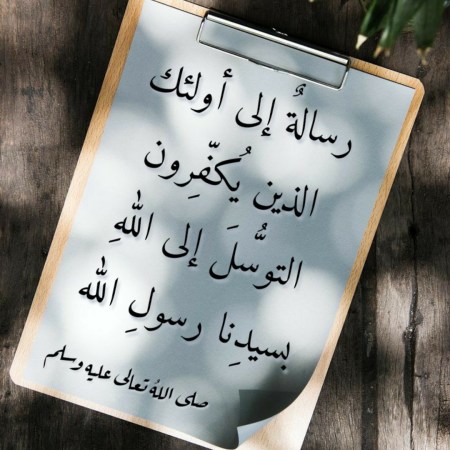 رسالةٌ إلى أولئك
الذين يُكفّرِون
التوسُّلَ إلى اللهِ
بسيدِنا رسولِ الله
صلى اللهُ تعالى عليه وسلم